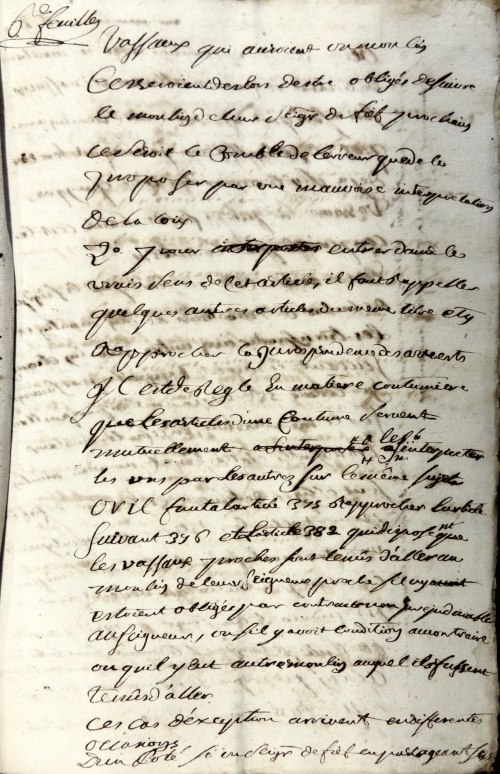 6e feuillet
Vassaux qui auroient un moulin
Ce seroient des lors destre obligés de suivre
le moulin de leur Seigr de fief prochain
ce seroit le Comble de lerreur que de le
proposer par une mauvaise interpretation
de la loix
pour interpreter entrer dans le
vrais sens de cet article, il faut rappeller
quelques autres articles du meme titre et y
Rapprocher la Jurisprudence des arrests
Il est de Regle En matiere coutumiere
que les articles d'une Coutume servent
mutuellement a interpreter
les uns par les autres sur le même sujet
OR il faut a l'article 375 rapprocher l'article
suivant 376 et l'article 382 qui disposent que
les vassaux proches sont tenus d'aller au
moulin de leurs seigneurs
estoient obligés par contract
au Seigneur, ou s'il y avoit Condition au contraire
ou qu'il y eut autre moulin auquel ils fussent
tenus d'aller
Ces cas d'éxception arrivent en differentes
occasions
D'un Coté si un Seigr de fief en partageant ses